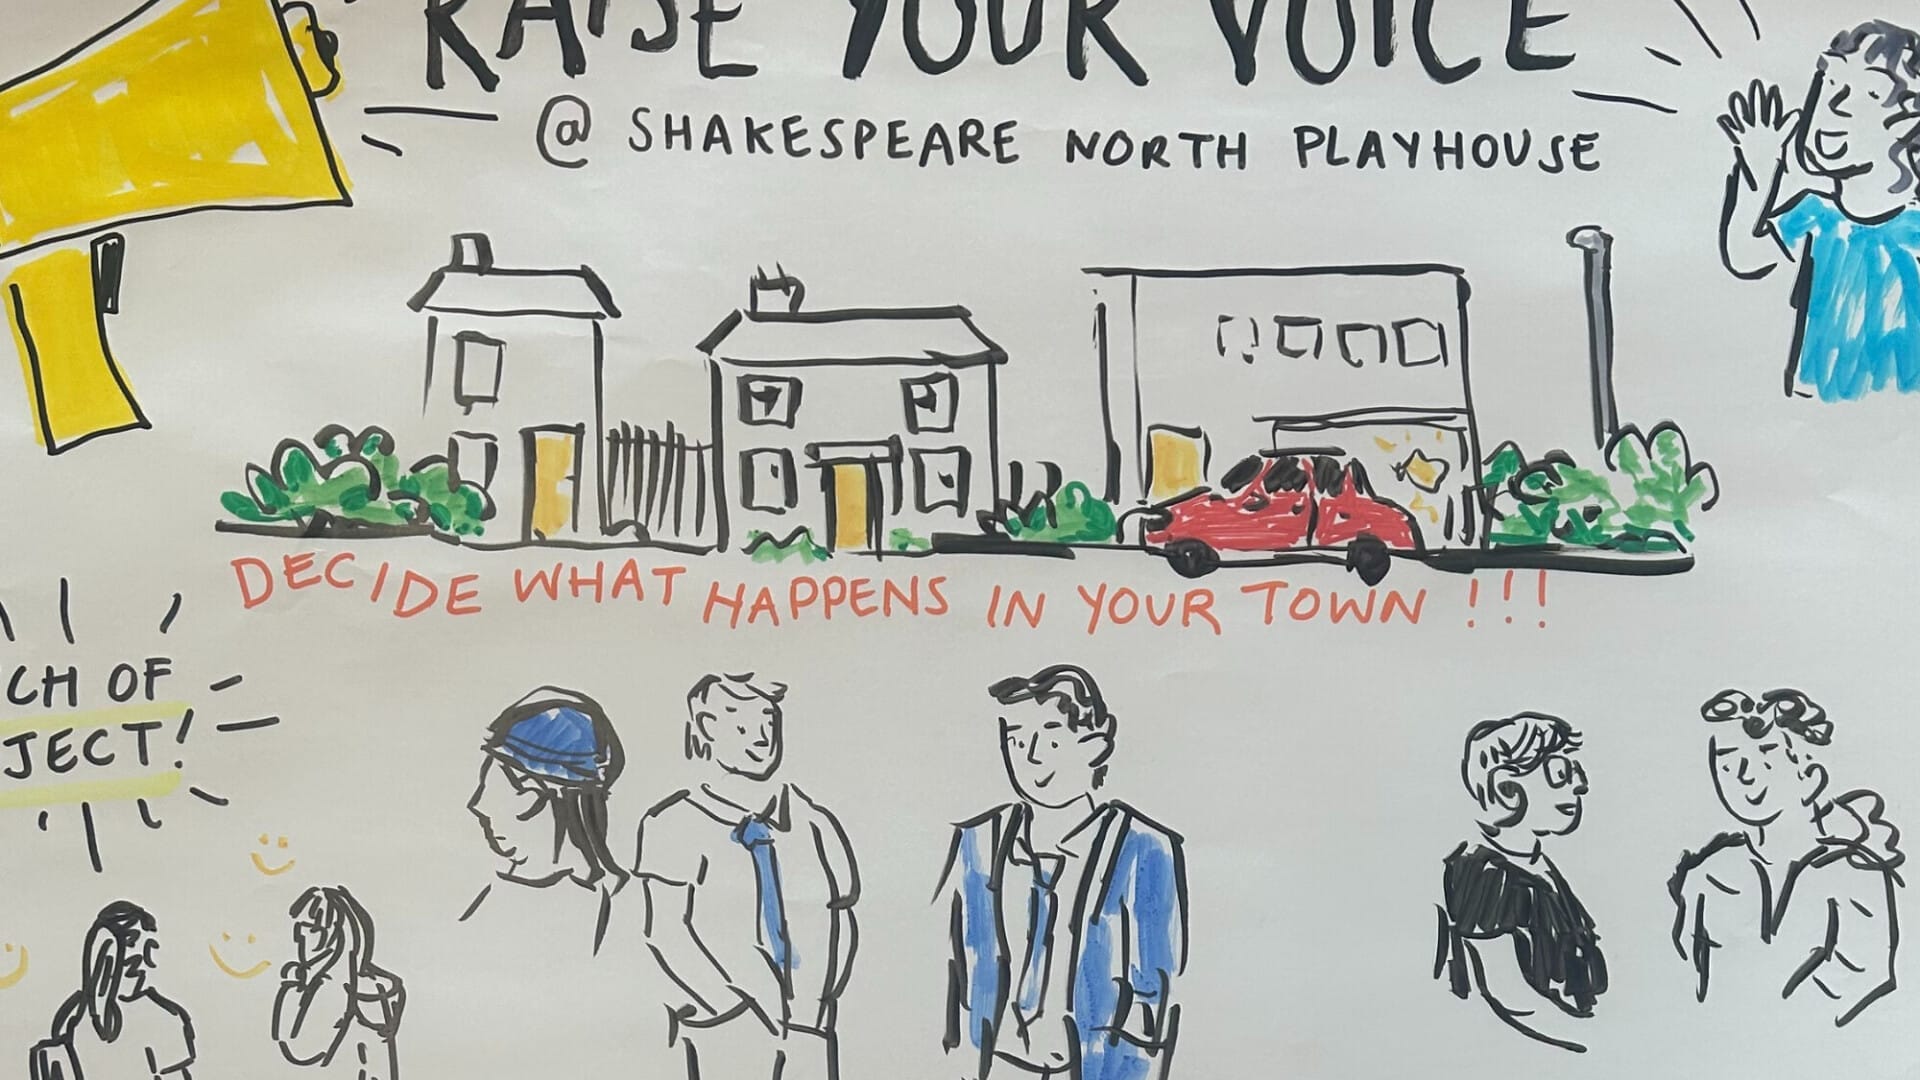 RAISE YOUR VOICE
@ SHAKESPEARE NORTH PLAYHOUSE
DECIDE WHAT HAPPENS IN YOUR TOWN !!!
CH OF
JECT!